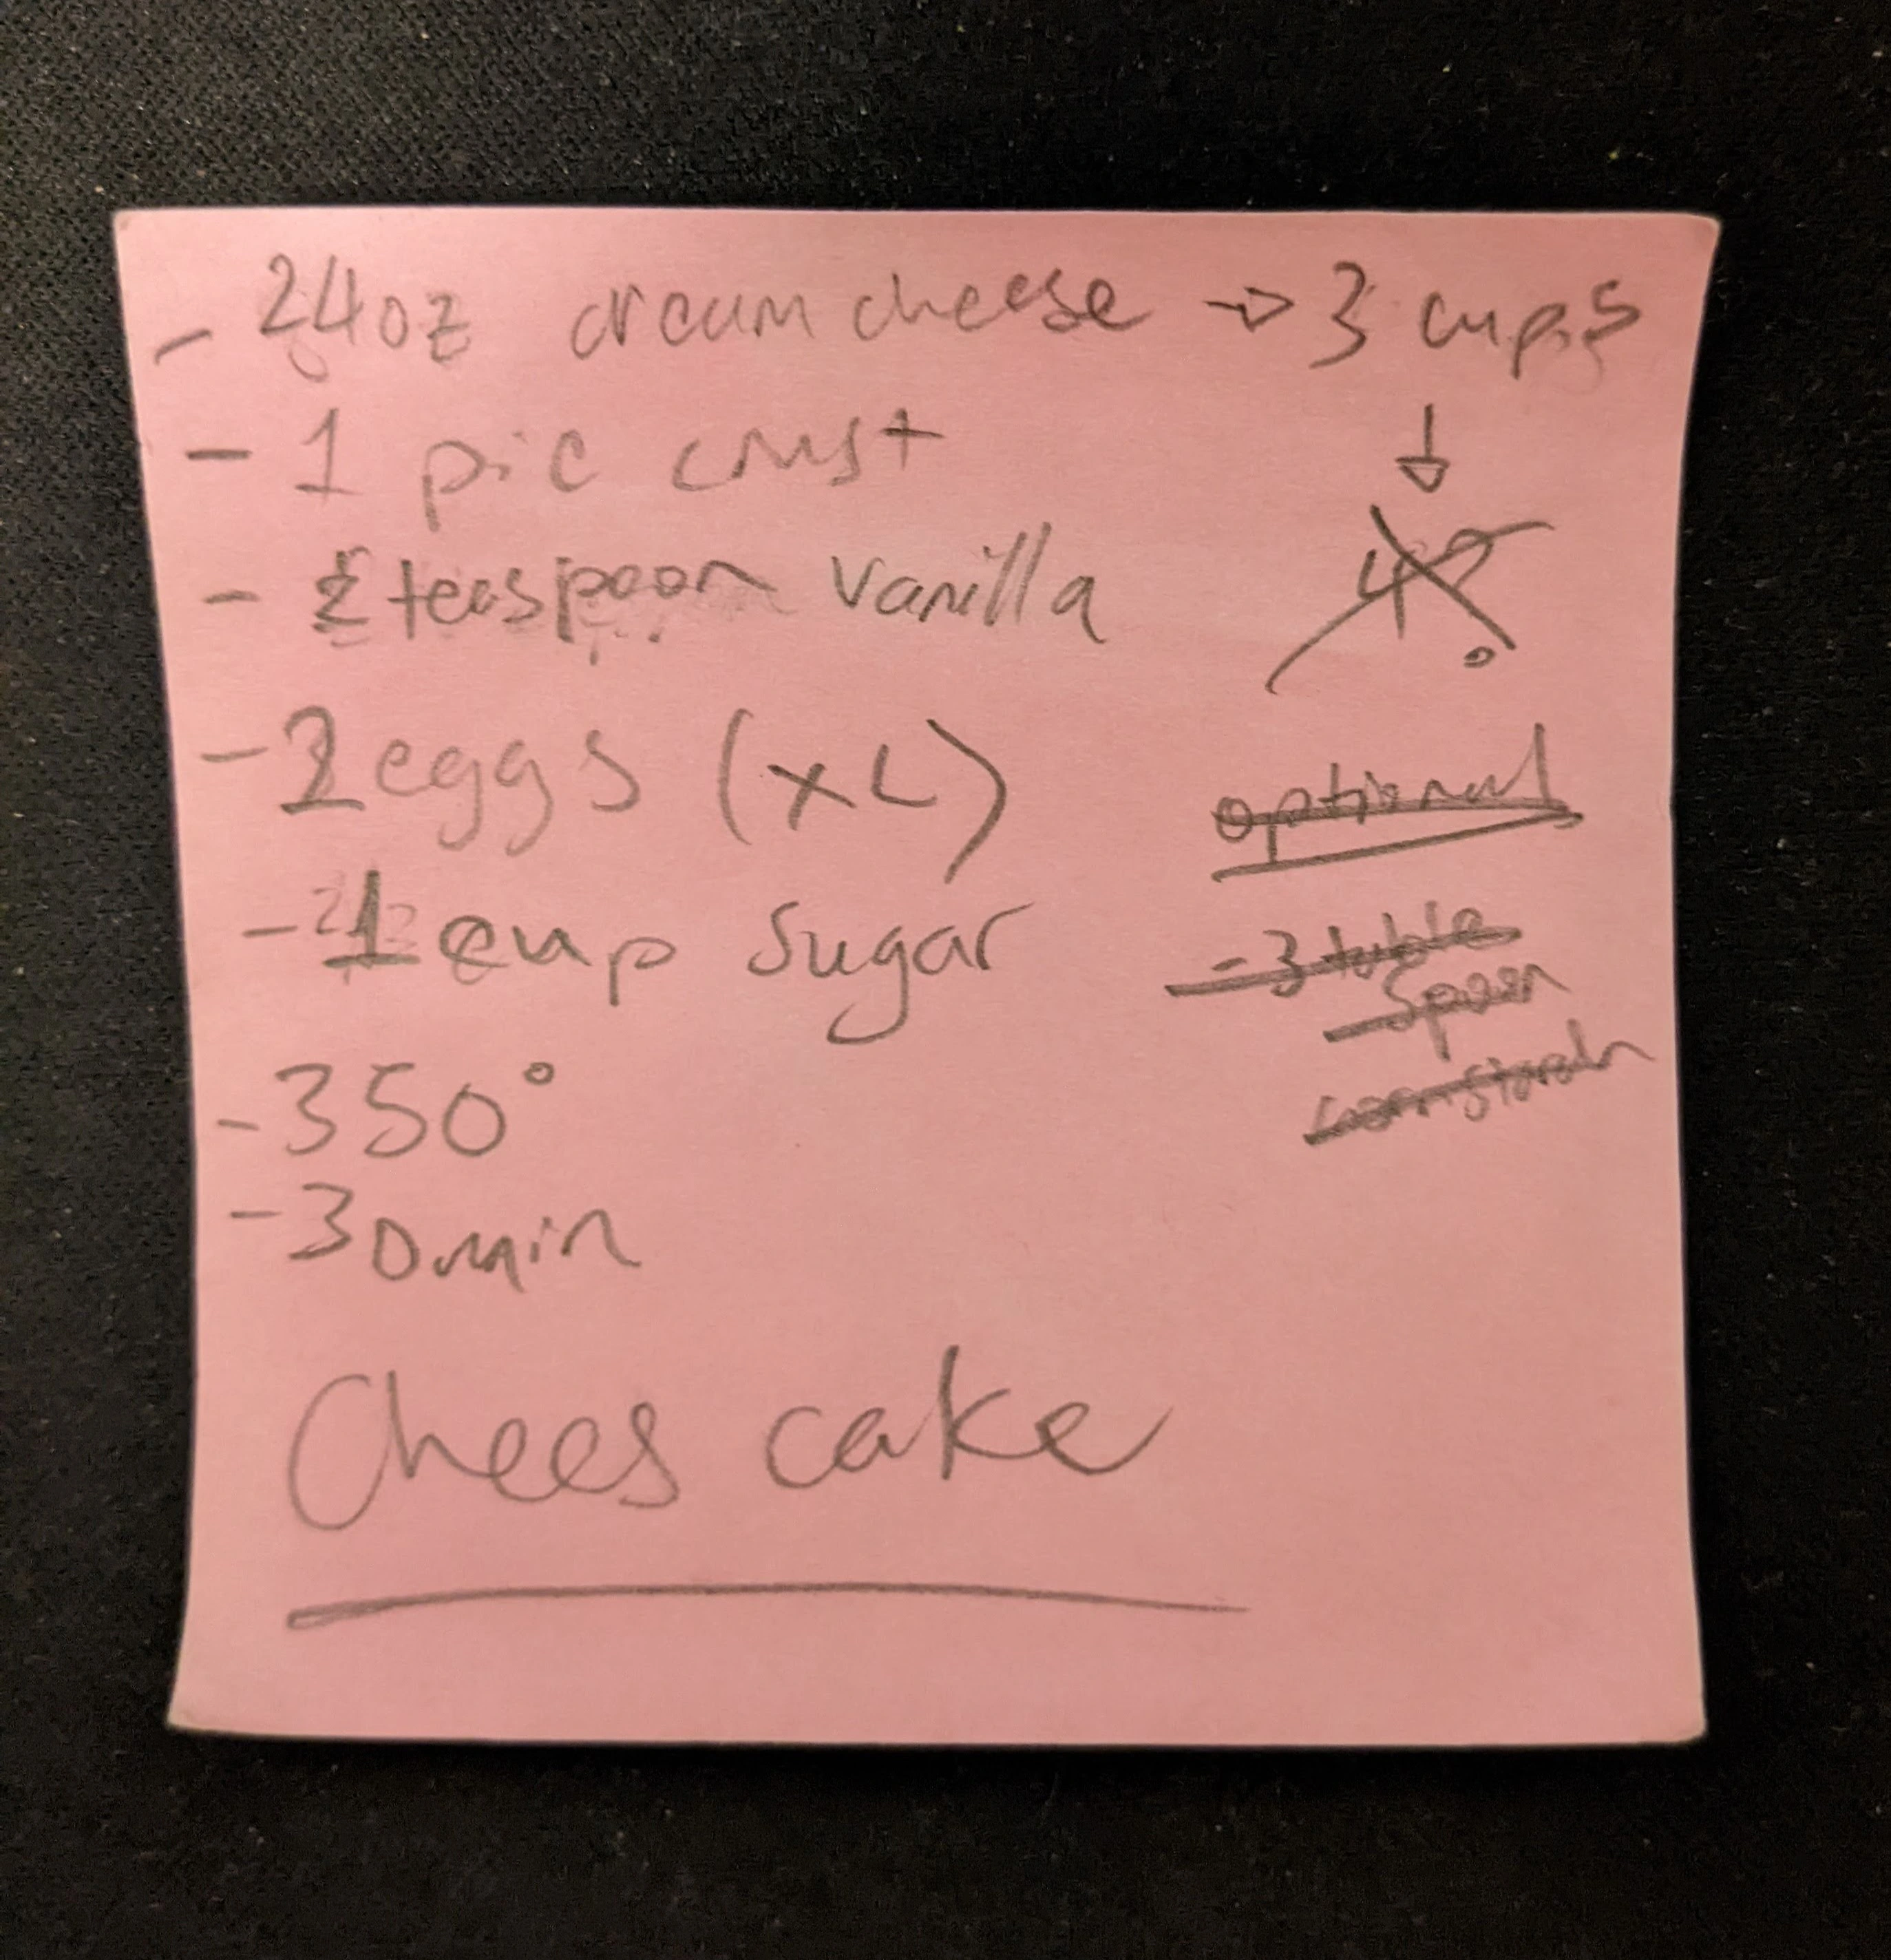 - 24oz cream cheese → 3 cups
↓
4?
- 1 pie crust
- 2 teaspoon vanilla
- 2 eggs (XL)
- 1 cup sugar
- 350°
- 30min
optional
- 3 table
spoon
cornstarch
Chees cake